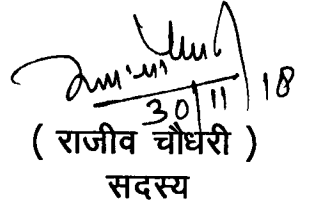 30/11/18
( राजीव चौधरी )
सदस्य